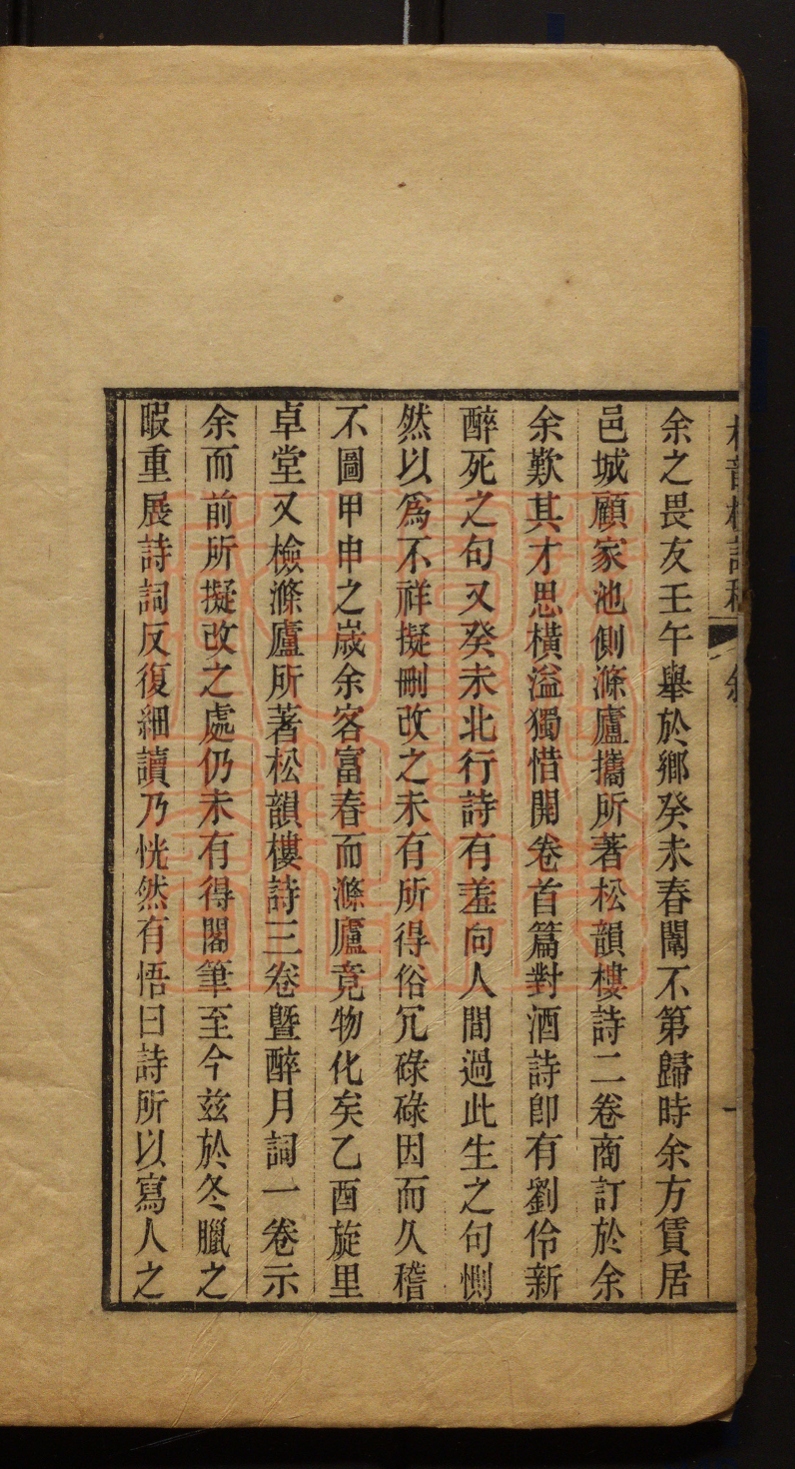 松韻樓詩稿 敘 一
余之畏友壬午舉於鄉癸未春闈不第歸時余方賃居
邑城顧家池側滌廬攜所著松韻樓詩二卷商訂於余
余歎其才思橫溢獨惜開卷首篇對酒詩卽有劉伶新
醉死之句又癸未北行詩有羞向人間過此生之句惻
然以爲不祥擬刪改之未有所得俗冗碌碌因而久稽
不圖甲申之歲余客富春而滌廬竟物化矣乙酉旋里
卓堂又檢滌廬所著松韻樓詩三卷曁醉月詞一卷示
余而前所擬改之處仍未有得閣筆至今茲於冬臘之
暇重展詩詞反復細讀乃恍然有悟曰詩所以寫人之